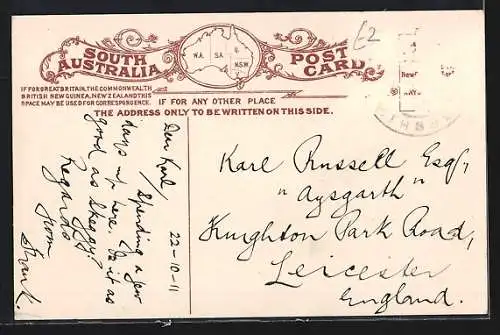 SOUTH AUSTRALIA
W.A. S.A. Q. N.S.W. V.
POST CARD
£2
IF FOR GREAT BRITAIN, THE COMMONWEALTH
BRITISH NEW GUINEA, NEW ZEALAND THIS
SPACE MAY BE USED FOR CORRESPONDENCE.
IF FOR ANY OTHER PLACE
THE ADDRESS ONLY TO BE WRITTEN ON THIS SIDE.
22-10-11
Dear Karl/
Spending a few
days up here. Is it as
good as Skeggy?
Regards
from
Frank.
Karl Russell Esqr,
"Aysgarth"
Knighton Park Road,
Leicester
England.